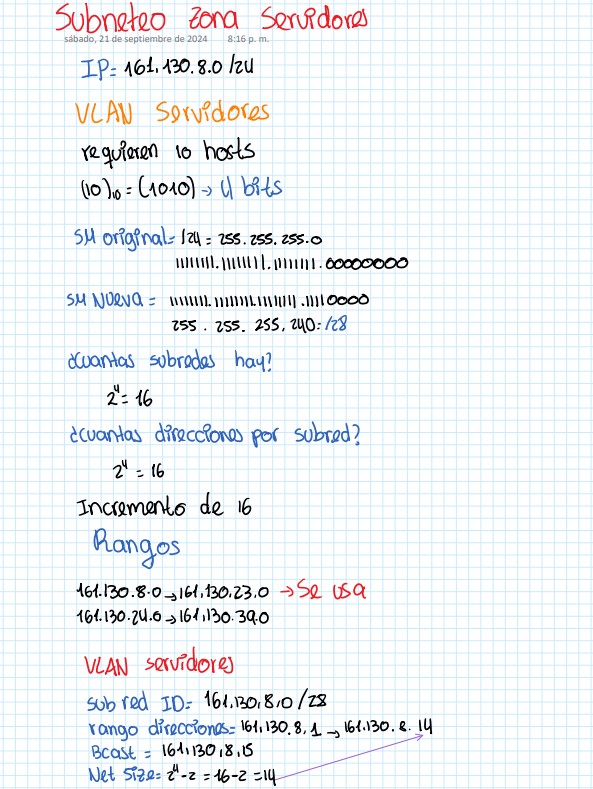 Subneteo zona Servidores
sábado, 21 de septiembre de 2024 8:16 p. m.
IP= 161.130.8.0 /24
VLAN Servidores
requieren 10 hosts
(10)₁₀ = (1010) → 4 bits
SM original= /24 = 255.255.255.0
11111111.11111111.11111111.00000000
SM Nueva = 11111111.11111111.11111111.11110000
255.255.255.240=/28
¿cuantas subredes hay?
2⁴= 16
¿cuantas direcciones por subred?
2⁴ = 16
Incremento de 16
Rangos
161.130.8.0→161.130.23.0 → Se usa
161.130.24.0→161.130.39.0
VLAN servidores
sub red ID= 161.130.8.0 /28
rango direcciones= 161.130.8.1 → 161.130.8.14
Bcast = 161.130.8.15
Net Size= 2⁴-2 = 16-2 = 14